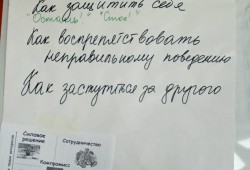 Как защитить себя
"Отстань!" "Стой!"
Как воспрепятствовать
неправильному поведению
Как заступиться за другого
Силовое
решение
Сотрудничество
Компромисс